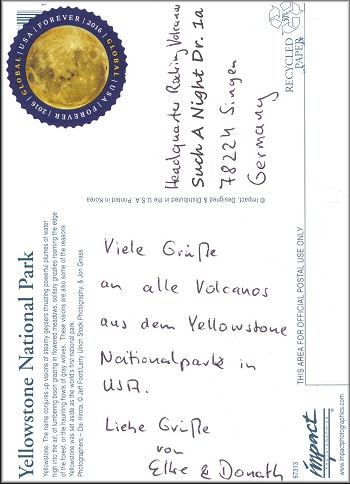 GLOBAL | USA | FOREVER | 2016 | GLOBAL | USA | FOREVER | 2016
Headquarter Rocking Volcanos
Such A Night Dr. 1a
78224 Singen
Germany
RECYCLED
PAPER
© Impact, Designed & Distributed in the U.S.A. Printed in Korea
Viele Grüße
an alle Volcanos
aus dem Yellowstone
Nationalpark in
USA.
Liebe Grüße
von
Elke & Donath
Yellowstone National Park
Yellowstone. The name conjures up visions of steamy geysers thrusting powerful plumes of water
high into the air, of lumbering bison grazing in flowered meadows, solitary grizzlies roaming the edge
of the forest, or the haunting howls of gray wolves. These visions are also some of the reasons
Yellowstone was set aside as the world's first national park.
THIS AREA FOR OFFICIAL POSTAL USE ONLY
67313
impact
www.impactphotographics.com